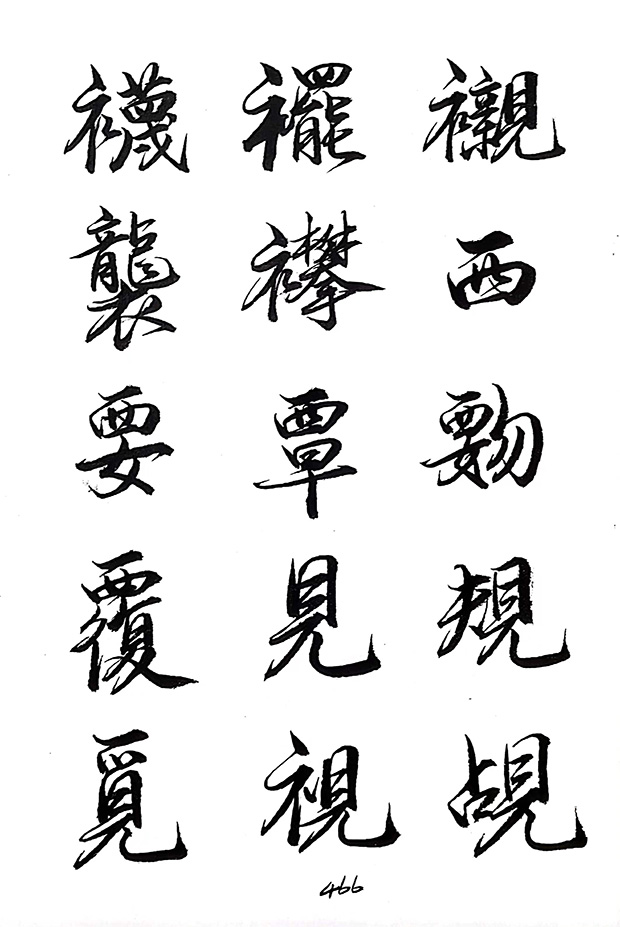 襪 襬 襯
襲 襻 西
要 覃 覅
覆 見 規
覓 視 覘
466